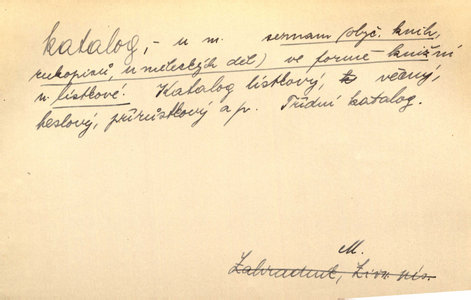 katalog, -u m. seznam (obyč. knih,
rukopisů, uměleckých děl) ve formě knižní
n. lístkové. Katalog lístkový, věcný,
heslový, přírůstkový a p. Třídní katalog.
M.
Zahradník,